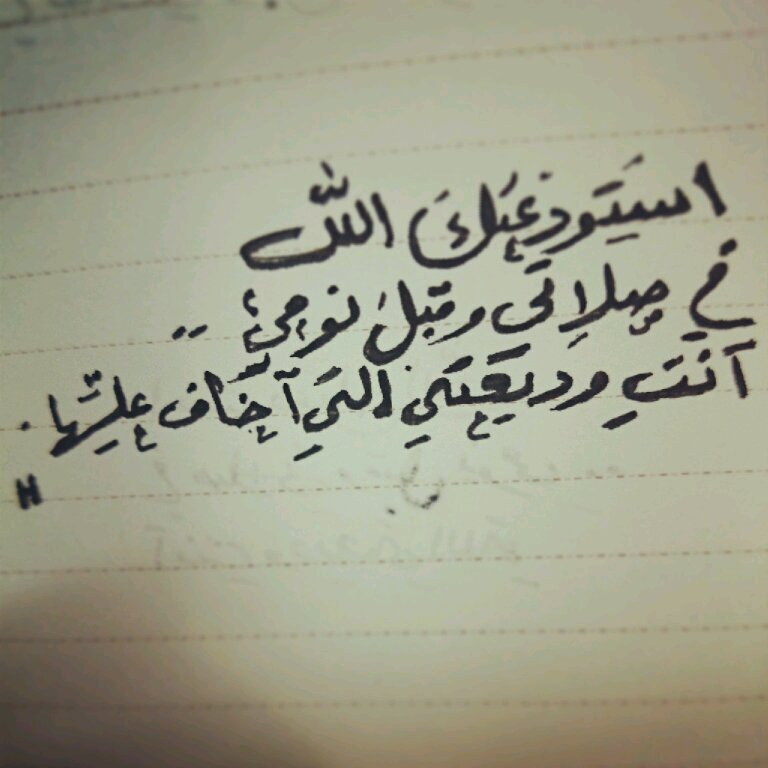 استودعتك الله
في صلاتي وقبل نومي ..
أنت وديعتي التي أخاف عليها .
H